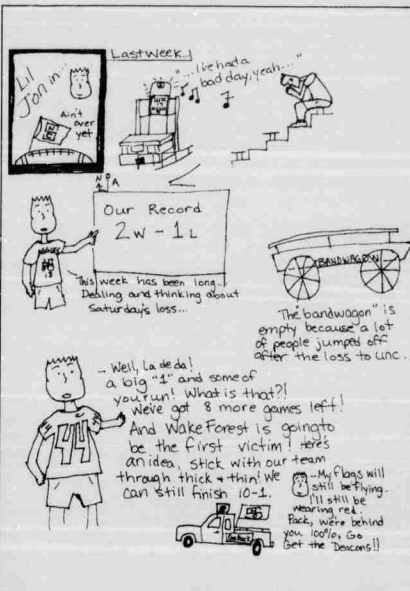 Last Week...
Lil
Jon in...
Ain't
over
yet
"...I've had a
bad day, yeah..."
N
A
Our Record
2W - 1L
This week has been long...
Dealing and thinking about
Saturday's loss...
BANDWAGON
The "bandwagon" is
empty because a lot
of people jumped off
after the loss to UNC.
- Well, La de da!
a big "1" and some of
you run! What is that?!
We've got 8 more games left!
And Wake Forest is going to
be the first victim! Here's
an idea, stick with our team
through thick + thin! We
can still finish 10-1.
44
- My flags will
still be flying.
I'll still be
wearing red.
Pack, we're behind
you 100%. Go
Get the Deacons!!
Go Pack